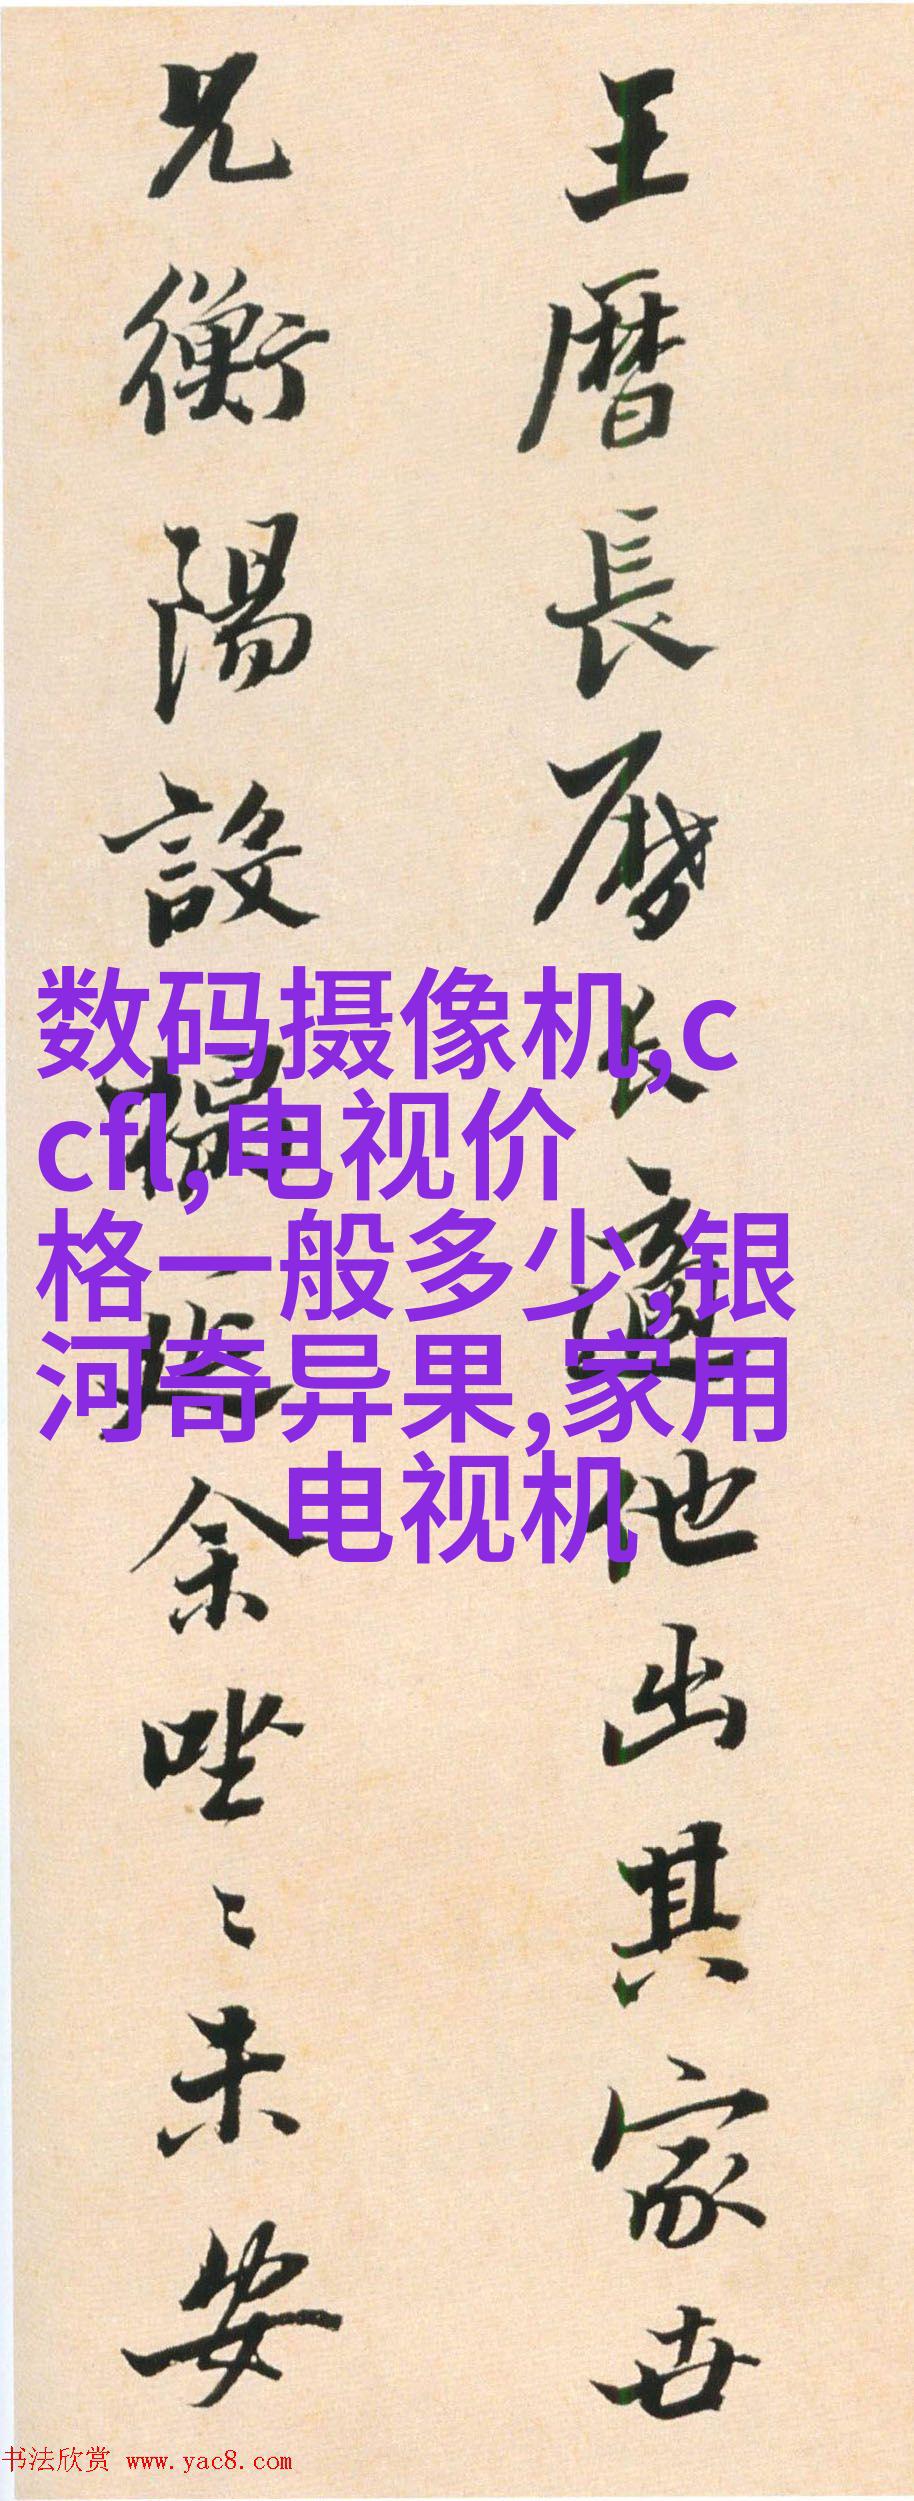 王曆長曆长適他出其家世
兄衡陽設榻延余唑〻未安
数码摄像机,c
cfl,电视价
格一般多少,银
河奇异果,家用
电视机
书法欣赏 www.yac8.com